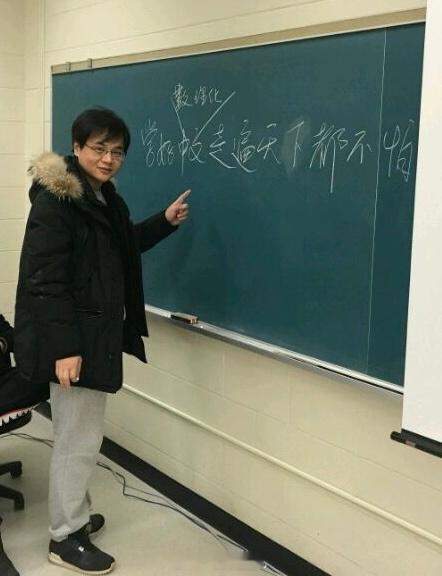 数理化
学好中文走遍天下都不怕